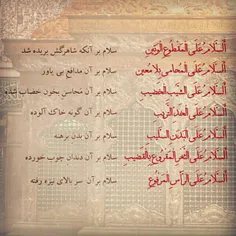 اَلسَّلامُ عَلَى المَقطُوعِ الوَتينِ سلام بر آنکه شاهرگش بریده شد
اَلسَّلامُ عَلَى المُحامي بِلا مُعينٍ سلام بر آن مدافع بی یاور
اَلسَّلامُ عَلَى الشَّيبِ الخَضيبِ سلام بر آن محاسن بخون خضاب شده
اَلسَّلامُ عَلَى الخَدِّ التَّريبِ سلام بر آن گونه خاک آلوده
اَلسَّلامُ عَلَى البَدَنِ السَّليبِ سلام بر آن بدن برهنه
اَلسَّلامُ عَلَى الثَّغرِ المَقرُوعِ بِالقَضيبِ سلام بر آن دندان چوب خورده
اَلسَّلامُ عَلَى الرَّأسِ المَرفُوعِ سلام بر آن سر بالای نیزه رفته